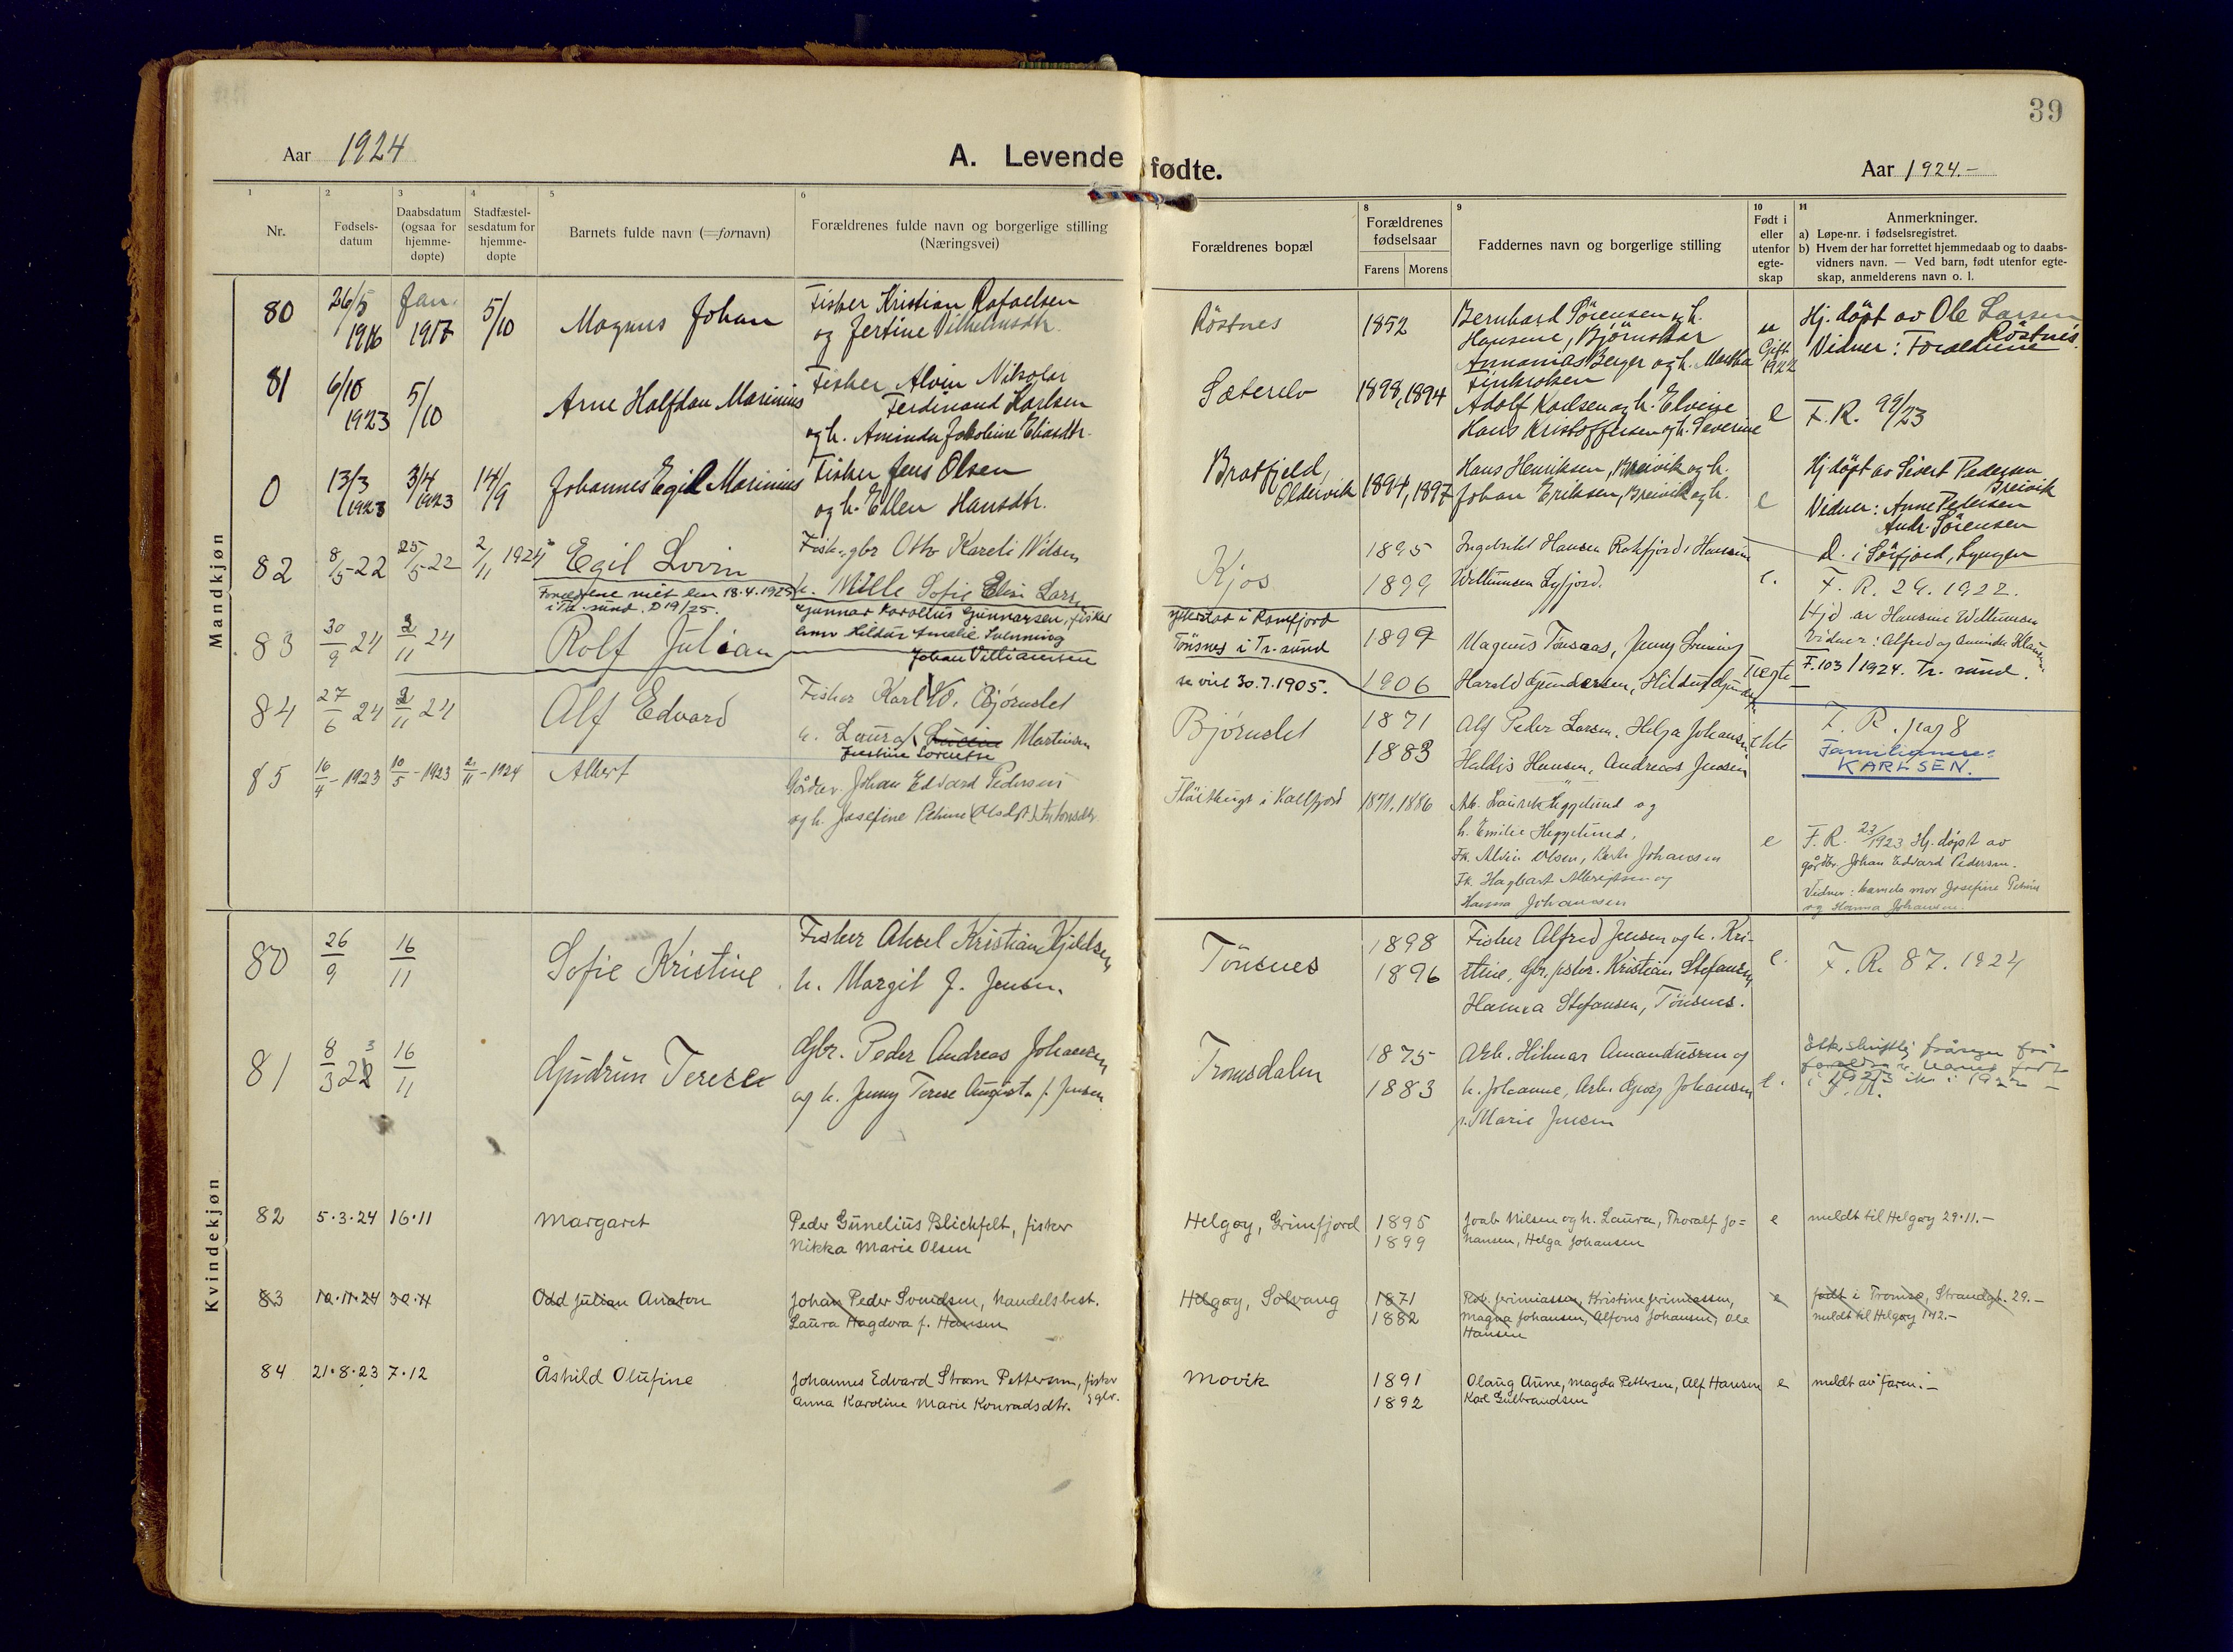 39
Aar 1924
A. Levende fødte.
Aar 1924.-
1
Nr.
2
Fødsels-
datum
3
Daabsdatum
(ogsaa for
hjemme-
døpte)
4
Stadfæstel-
sesdatum for
hjemme-
døpte
5
Barnets fulde navn (=fornavn)
6
Forældrenes fulde navn og borgerlige stilling
(Næringsvei)
Forældrenes bopæl
8
Forældrenes
fødselsaar
Farens Morens
9
Faddernes navn og borgerlige stilling
10
Født i
eller
utenfor
egte-
skap
11
Anmerkninger.
a) Løpe-nr. i fødselsregistret.
b) Hvem der har forrettet hjemmedaab og to daabs-
vidners navn. — Ved barn, født utenfor egte-
skap, anmelderens navn o. l.
Mandkjøn
80
26/5
1916
Jan.
1917
5/10
Magnus Johan
Fisker Kristian Rafaelsen
og Jertine Vilhelmsdtr.
Röstnes
1852
Bernhard Sörensen og h.
Hansine, Björnskar
Annanias Berger og h. Martha
u
Gift
1922
Hj. döpt av Ole Larsen
Röstnes.
Vidner: Foraeldrene
81
6/10
1923
5/10
Arne Halfdan Marinius
Fisker Alvin Nikolai
Ferdinand Karlsen
og h. Aminda Jakobine Eliasdtr.
Sæterelv
1898, 1894
Adolf Karlsen og h. Elvine
Hans Kristoffersen og h. Severine
e
F.R. 99/23
0
13/3
1923
3/4
1923
14/9
Johannes Egil Marinius
Fisker Jens Olsen
og h. Ellen Hansdtr.
Bratfjeld,
Oldervik
1894, 1897
Hans Henriksen, Breivik og h.
Johan Eriksen, Breivik og h.
e
Hj döpt av Sivert Pedersen
Breivik
Vidner: Anne Pedersen
Andr. Sörensen
82
8/5 22
25/5 22
2/11 1924
Egil Lovin
Fisk. gbr Otto Kareli Nilsen
h. Mille Sofie Elisi Lars
Kjos
1895
1899
Ingebrikt Hansen Rakfjord, Hansine
Willumsen Lyfjord.
e.
D. i Sörfjord, Lyngen
F. R. 29. 1922.
Hjd av Hansine Willumsen
Vidner: Alfred og Aminda
83
30/9 24
2/11 24
Rolf Julian
Gunnar Karolius Gunnarsen, fisker
Hildur Amalie Svenning
Johan Villiamsen
i Ramfjord
Tönsnes i Tr.sund
30.7.1905.
1899
1906
Magnus Tönsaas, Jenny
Harald Gundersen, Hildur
uegte
F.103/1924. Tr. sund.
84
27/6 24
2/11 24
Alf Edvard
Fisker Karl W. Bjørnslet
h. Laura Martinsen
Justine Lorentse
Bjørnslet
1871
1883
Alf Peder Larsen. Helga Johansen
Haldis Hansen, Andreas Jensen
ekte
F. R. pag 8
KARLSEN.
85
16/4 - 1923
10/5 - 1923
2/11 - 1924
Albert
Gårdbr. Johan Edvard Pedersen
og h. Josefine Petrine (Olsdtr.) Antonsdtr.
i Kalfjord
1871. 1886
Arb. Laurik Heggelund og
h. Emilie Heggelund.
Fk. Alvin Olsen, Berte Johansen
Fk. Hagbart Albrigtsen og
Hanna Johansen
e
F. R. 23/1923 Hj. döpt av
gårdbr. Johan Edvard Pedersen.
Vidner: barnets mor Josefine Petrine
og Hanna Johansen.
Kvindekjøn
80
26/9
16/11
Sofie Kristine
Fisker Aksel Kristian Kjeldsen
h. Margit J. Jensen.
Tönsnes
1898
1896
Fisker Alfred Jensen og h. Kri-
stine, Gbr. fisker. Kristian Stefansen,
Hanna Stefansen, Tönsnes.
e.
F. R. 87. 1924
81
8/3 22 3
16/11
Gudrun Terese
Gbr. Peder Andreas Johansen
og h. Jenny Terese Augusta f. Jensen
Tromsdalen
1875
1883
Arb. Hilmar Amandussen og
h. Johanne, Arb. Georg Johansen
Marie Jensen
e.
i 1923 ikke i 1922 -
F. R.
82
5.3.24
16.11
Margaret
Peder Gunelius Blichfelt, fisker
Nikka Marie Olsen
Helgøy, Grunfjord
1895
1899
Joab Nilsen og h. Laura, Thoralf Jo=
hansen, Helga Johansen
e
meldt til Helgøy 29.11.-
83
10.11.24
30.11
Odd Julian Anaton
Johan Peder Svendsen, handelsbest.
Laura Hagdora f. Hansen
Helgøy, Solvang
1871
1882
Rob. Jerimiassen, Kristine Jerimiassen,
Magna Johansen, Alfons Johansen, Ole
Hansen
e
født i Tromsø, Strandgt. 29.-
meldt til Helgøy 1.12.-
84
21.8.23
7.12
Åshild Olufine
Johannes Edvard Strøm Pettersen, fisker
Anna Karoline Marie Konradsdtr. & gbr.
Movik
1891
1892
Olaug Aune, Magda Pettersen, Alf Hansen
Karl Gulbrandsen
e
meldt av faren.-